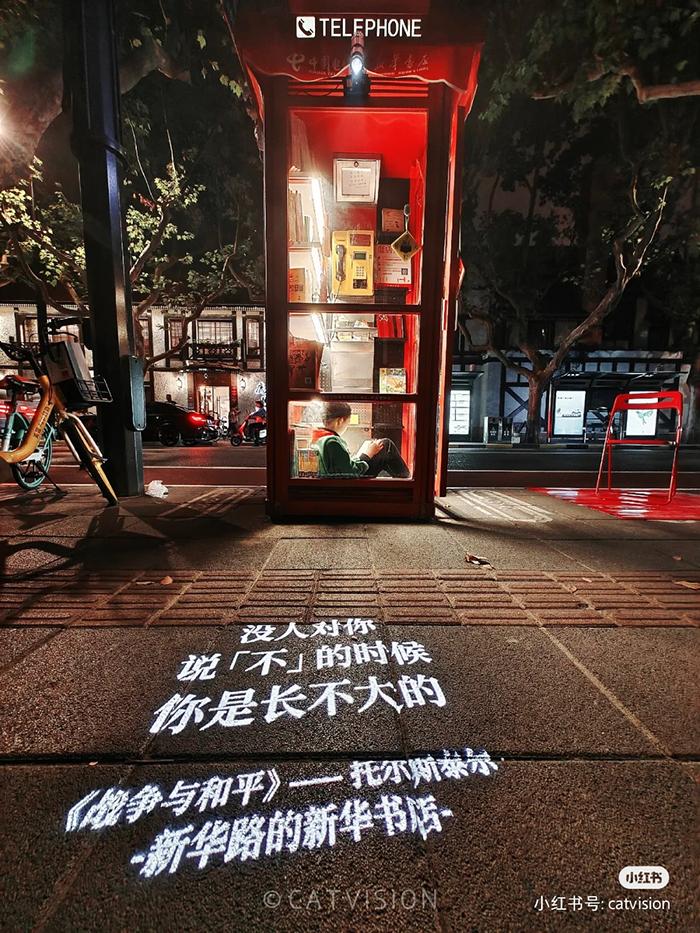 TELEPHONE
没人对你
说「不」的时候
你是长不大的
《战争与和平》—托尔斯泰尔
-新华路的新华书店-
©CATVISION
小红书
小红书号: catvision